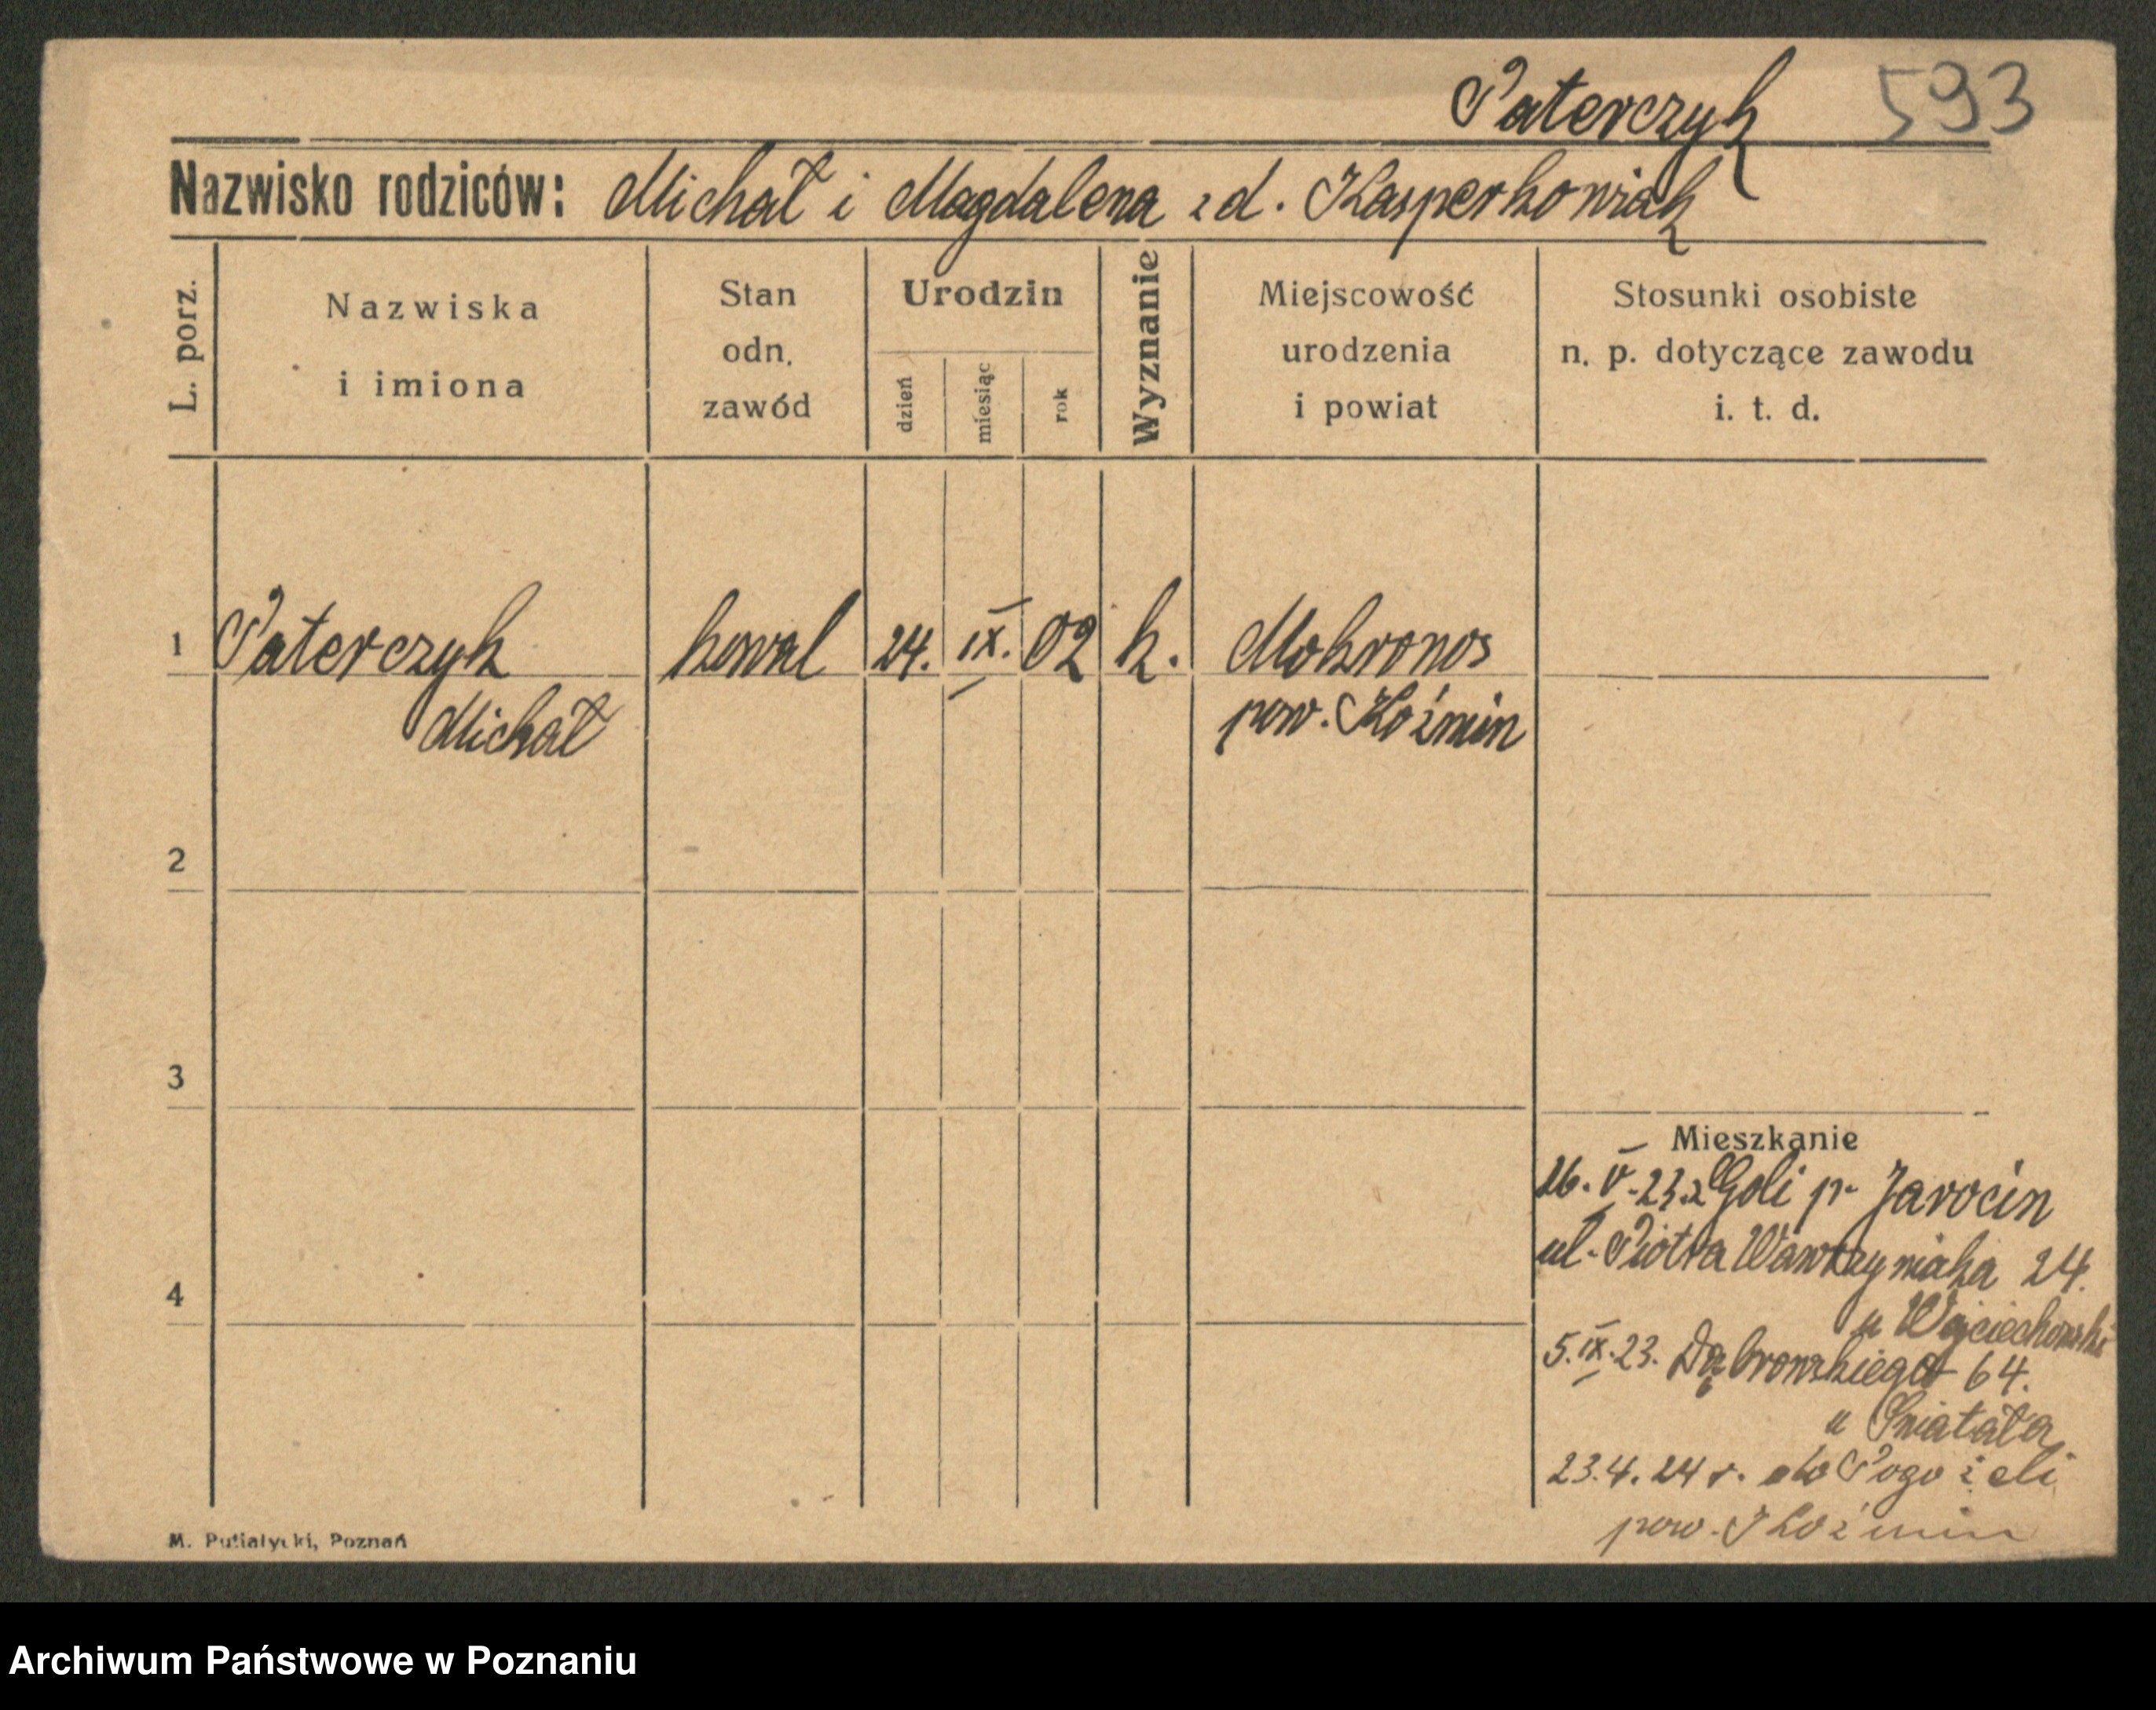 Paterczyk 593
Nazwisko rodziców: Michał i Magdalena z d. Kasperkowiak
L. porz.
Nazwiska
i imiona
Stan
odn.
zawód
Urodzin
dzień
miesiąc
rok
Wyznanie
Miejscowość
urodzenia
i powiat
Stosunki osobiste
n. p. dotyczące zawodu
i. t. d.
1 Paterczyk kowal 24. IX. 02 k. Mokronos
Michał pow. Koźmin
2
3
4
Mieszkanie
16. V. 23. z Goli p. Jarocin
ul. Piotra Wawrzyniaka 24.
u Wojciechowski
5. IX. 23. Dąbrowskiego 64.
u Śniatała
23.4.24 r. do Pogożeli
pow. Koźmin
M. Putiatycki, Poznań
Archiwum Państwowe w Poznaniu